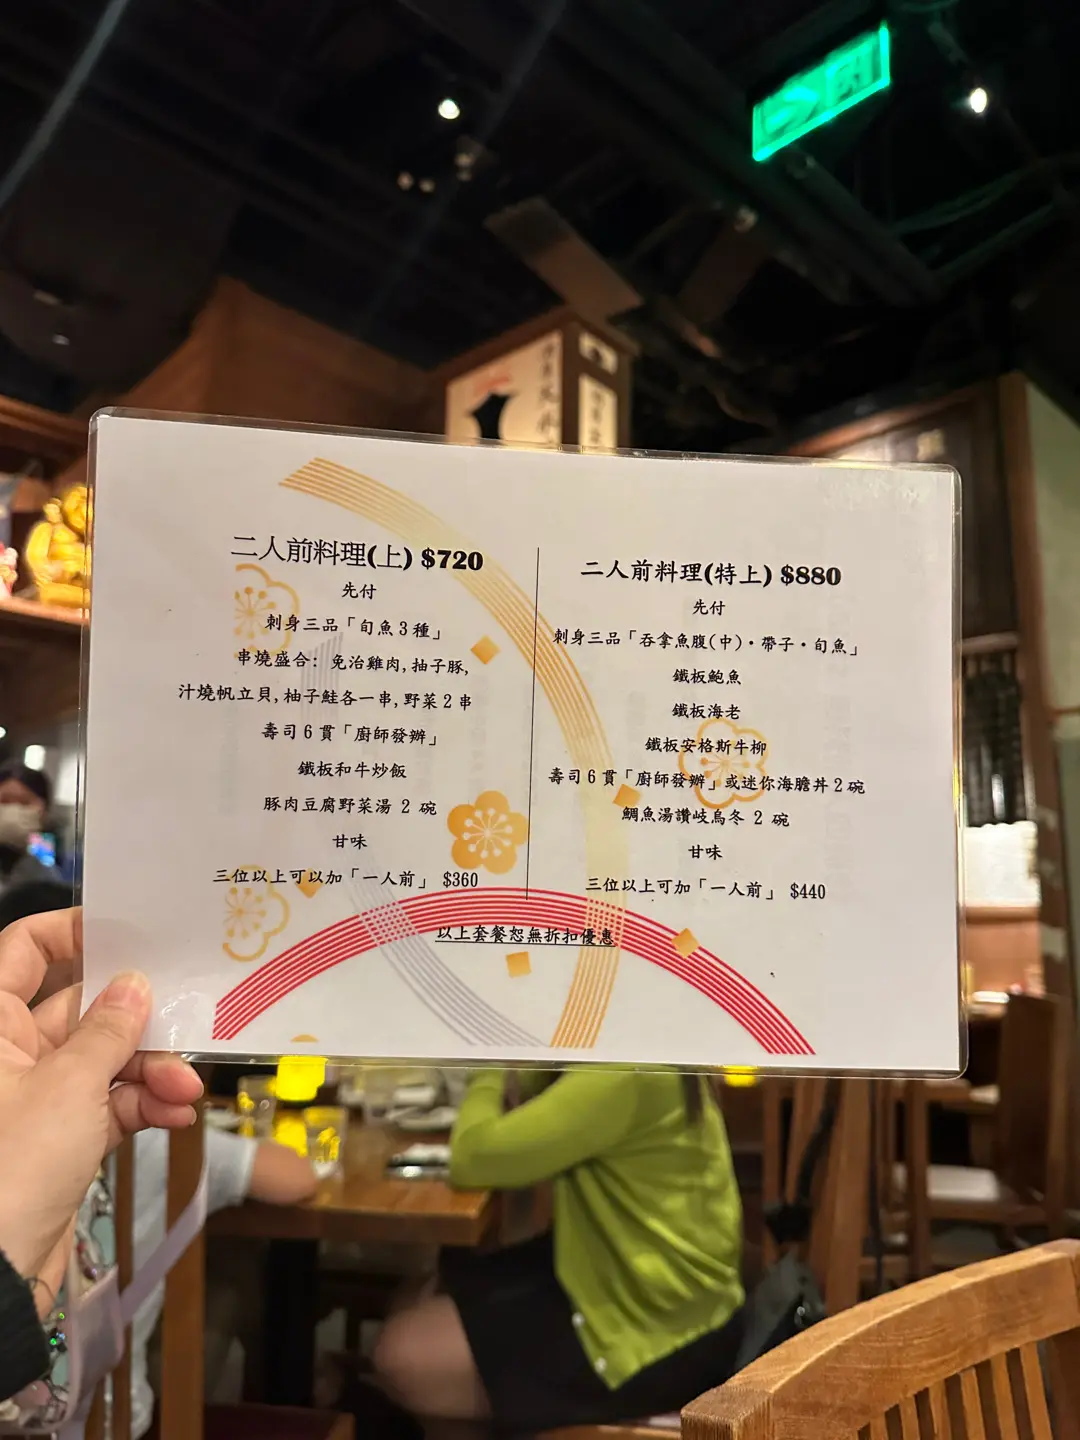 二人前料理(上) $720
先付
刺身三品「旬魚3種」
串燒盛合: 免治雞肉,柚子豚,
汁燒帆立貝,柚子鮭各一串,野菜2串
壽司6貫「廚師發辦」
鐵板和牛炒飯
豚肉豆腐野菜湯 2 碗
甘味
三位以上可以加「一人前」 $360
二人前料理(特上) $880
先付
刺身三品「吞拿魚腹(中)・帶子・旬魚」
鐵板鮑魚
鐵板海老
鐵板安格斯牛柳
壽司6貫「廚師發辦」或迷你海膽丼2碗
鯛魚湯讚岐烏冬 2 碗
甘味
三位以上可加「一人前」 $440
以上套餐恕無拆扣優惠